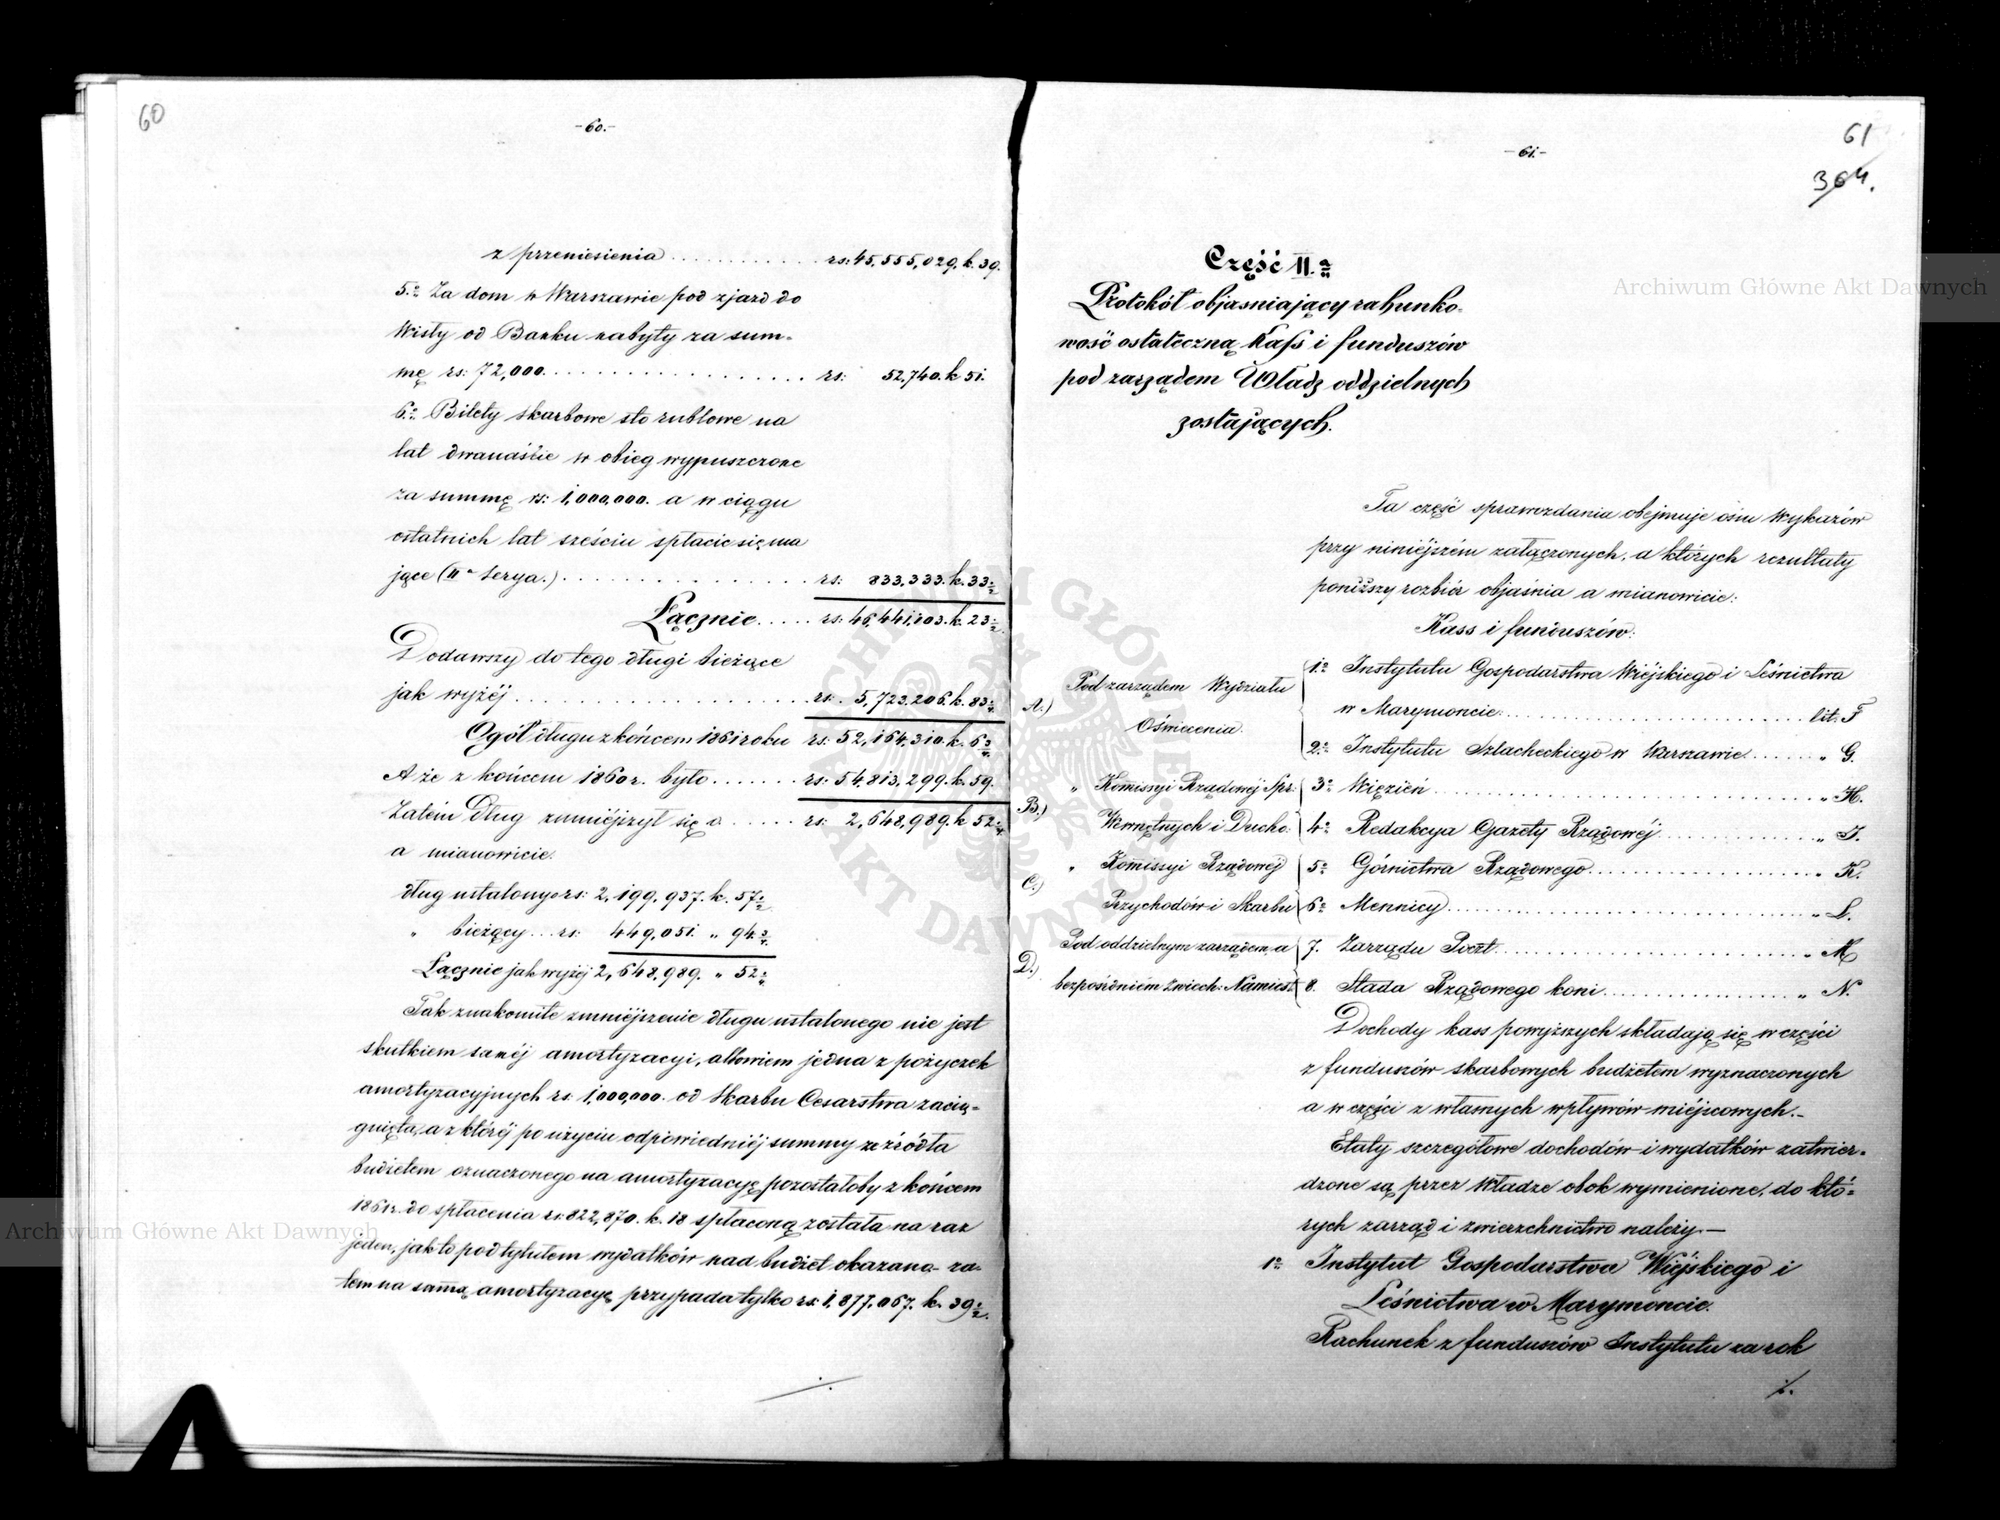 60
- 60. -
z przeniesienia . . . . . . . . . . . rs: 45,555,029. k. 39.
5.o Za dom w Warszawie pod zjazd do
Wisły od Banku nabyty za sum=
mę rs: 72,000. . . . . . . . . . . . . . . . rs: 52,740. k 51.
6.o Bilety skarbowe sto rublowe na
lat dwanaście w obieg wypuszczone
za summę rs: 1,000,000. a w ciągu
ostatnich lat sześciu spłacić się ma
jące (II.a Serya.) . . . . . . . . . . . . rs: 833,333. k. 33 1/2
Łącznie . . . . . rs: 46,441,103. k. 23 1/2
Dodawszy do tego długi bieżące
jak wyżéj . . . . . . . . . . . . . . . . rs. 5,723,206. k. 83 1/4
Ogół długu z końcem 1861 roku rs: 52,164,310. k. 6 3/4
A że z końcem 1860 r. było . . . . . . . rs: 54,813,299. k. 59.
Zatém dług zmniéjszył się o . . . . . rs: 2,648,989. k 52 1/4
a mianowicie.
dług ustalony rs: 2,199,937. k. 57 1/2
„ bieżący . . . rs: 449,051. „ 94 3/4
Łącznie jak wyżéj 2,648,989. „ 52 1/4
Tak znakomite zmniéjszenie długu ustalonego nie jest
skutkiem saméj amortyzacyi, albowiem jedna z pożyczek
amortyzacyjnych rs: 1,000,000. od Skarbu Cesarstwa zacią=
gnięta, a z któréj po użyciu odpowiedniéj summy ze źródła
budżetem oznaczonego na amortyzacyę pozostałoby z końcem
1861 r. do spłacenia rs: 822,870. k. 18 spłaconą została na raz
jeden, jak to pod tytułem wydatków nad budżet okazano - za=
tem na samą amortyzacyę przypada tylko rs: 1,377,067. k. 39 1/2.
61
364.
- 61. -
Część II.a
Protokół objasniający rahunko=
wość ostateczną Kass i funduszów
pod zarządem Władz oddzielnych
zostających.
Ta część sprawozdania obejmuje ośm Wykazów
przy niniéjszém załączonych, a których rezultaty
poniższy rozbiór objaśnia a mianowicie:
Kass i funduszów:
A.) Pod zarządem Wydziału
Oświecenia.
1.o Instytutu Gospodarstwa Wiéjskiego i Leśnictwa
w Marymoncie. . . . . . . . . . . . . . . . . lit: F
2.o Instytutu Szlacheckiego w Warszawie . . . . . . „ G.
B.) „ Komissyi Rządowéj Spr:
Wewnętrznych i Ducho:
3.o Więzień . . . . . . . . . . . . . . . . . . „ H.
4.o Redakcya Gazety Rządowéj . . . . . . . . . „ J.
C.) „ Komissyi Rządowéj
Przychodów i Skarbu
5.o Górnictwa Rządowego . . . . . . . . . . . . „ K.
6.o Mennicy . . . . . . . . . . . . . . . . . . „ L.
D.) Pod oddzielnym zarządem, a
bezpośredniém zwiech: Namiest:
7. Zarządu Poczt . . . . . . . . . . . . . . . „ M
8. Stada Rządowego koni . . . . . . . . . . . „ N.
Dochody kass powyższych składają się w części
z funduszów skarbowych budżetem wyznaczonych
a w części z własnych wpływów miéjscowych. -
Etaty szczegółowe dochodów i wydatków zatwier=
dzone są przez Władze obok wymienione, do któ=
rych zarząd i zwierzchnictwo należy. -
1.o Instytut Gospodarstwa Wiéjskiego i
Leśnictwa w Marymoncie.
Rachunek z funduszów Instytutu za rok
./.
Archiwum Główne Akt Dawnych
Archiwum Główne Akt Dawnych
ARCHIWUM GŁÓWNE AKT DAWNYCH